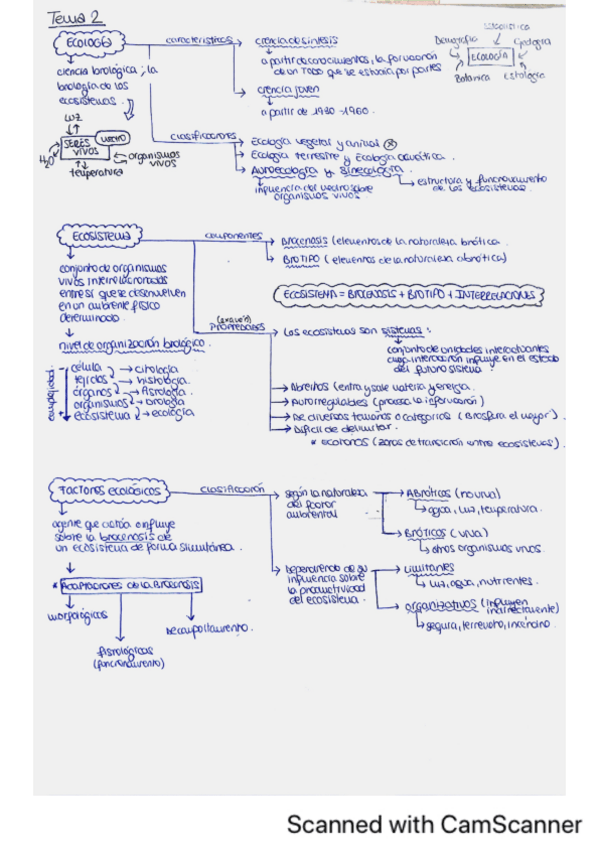 Tema 2
ECOLOGÍA
características
ciencia de síntesis
a partir de conocimientos, la formación
de un TODO que se estudia por partes
ciencia joven
a partir de 1930-1960.
Estadística
Demografía
Geología
ECOLOGÍA
Botánica
Etología
ciencia biológica; la
biología de los
ecosistemas.
luz
SERES
VIVOS
H2O
organismos
vivos
temperatura
clasificaciones
Ecología vegetal y animal
Ecología terrestre y Ecología acuática.
Autoecología y Sinecología.
influencia del medio sobre
organismos vivos
estructura y funcionamiento
de los ecosistemas.
ECOSISTEMA
componentes
BIOCENOSIS (elementos de la naturaleza biótica
BIOTIPO (elementos de la naturaleza abiótica)
conjunto de organismos
vivos interrelacionados
entre sí que se desenvuelven
en un ambiente físico
determinado.
ECOSISTEMA = BIOCENOSIS + BIOTIPO + INTERRELACIONES
nivel de organización biológico.
PROPIEDADES
Los ecosistemas son sistemas:
conjunto de unidades interactuantes
cuya interacción influye en el estado
del futuro sistema.
complejidad
célula → citología
tejidos → histología.
órganos → fisiología.
organismos →
ecosistema → ecología
Abiertos (entra y sale materia y energía.
Autorregulables (procesa la información)
De diversos tamaños o categorías (Biosfera el mayor).
Difícil de delimitar.
* ecotonos (zonas de transición entre ecosistemas).
FACTORES ECOLÓGICOS
clasificación
según la naturaleza
del factor
ambiental
ABIÓTICOS (no viva)
agua, luz, temperatura.
BIÓTICOS (viva)
otros organismos vivos.
agente que actúa o influye
sobre la biocenosis de
un ecosistema de forma simultánea.
* Adaptaciones de la Biocenosis
morfológicos
fisiológicos
(funcionamiento)
De comportamiento.
Dependiendo de su
influencia sobre
la productividad
del ecosistema.
LIMITANTES
luz, agua, nutrientes.
ORGANIZATIVOS (influyen
indirectamente)
sequía, terremoto, incendio.
Scanned with CamScanner